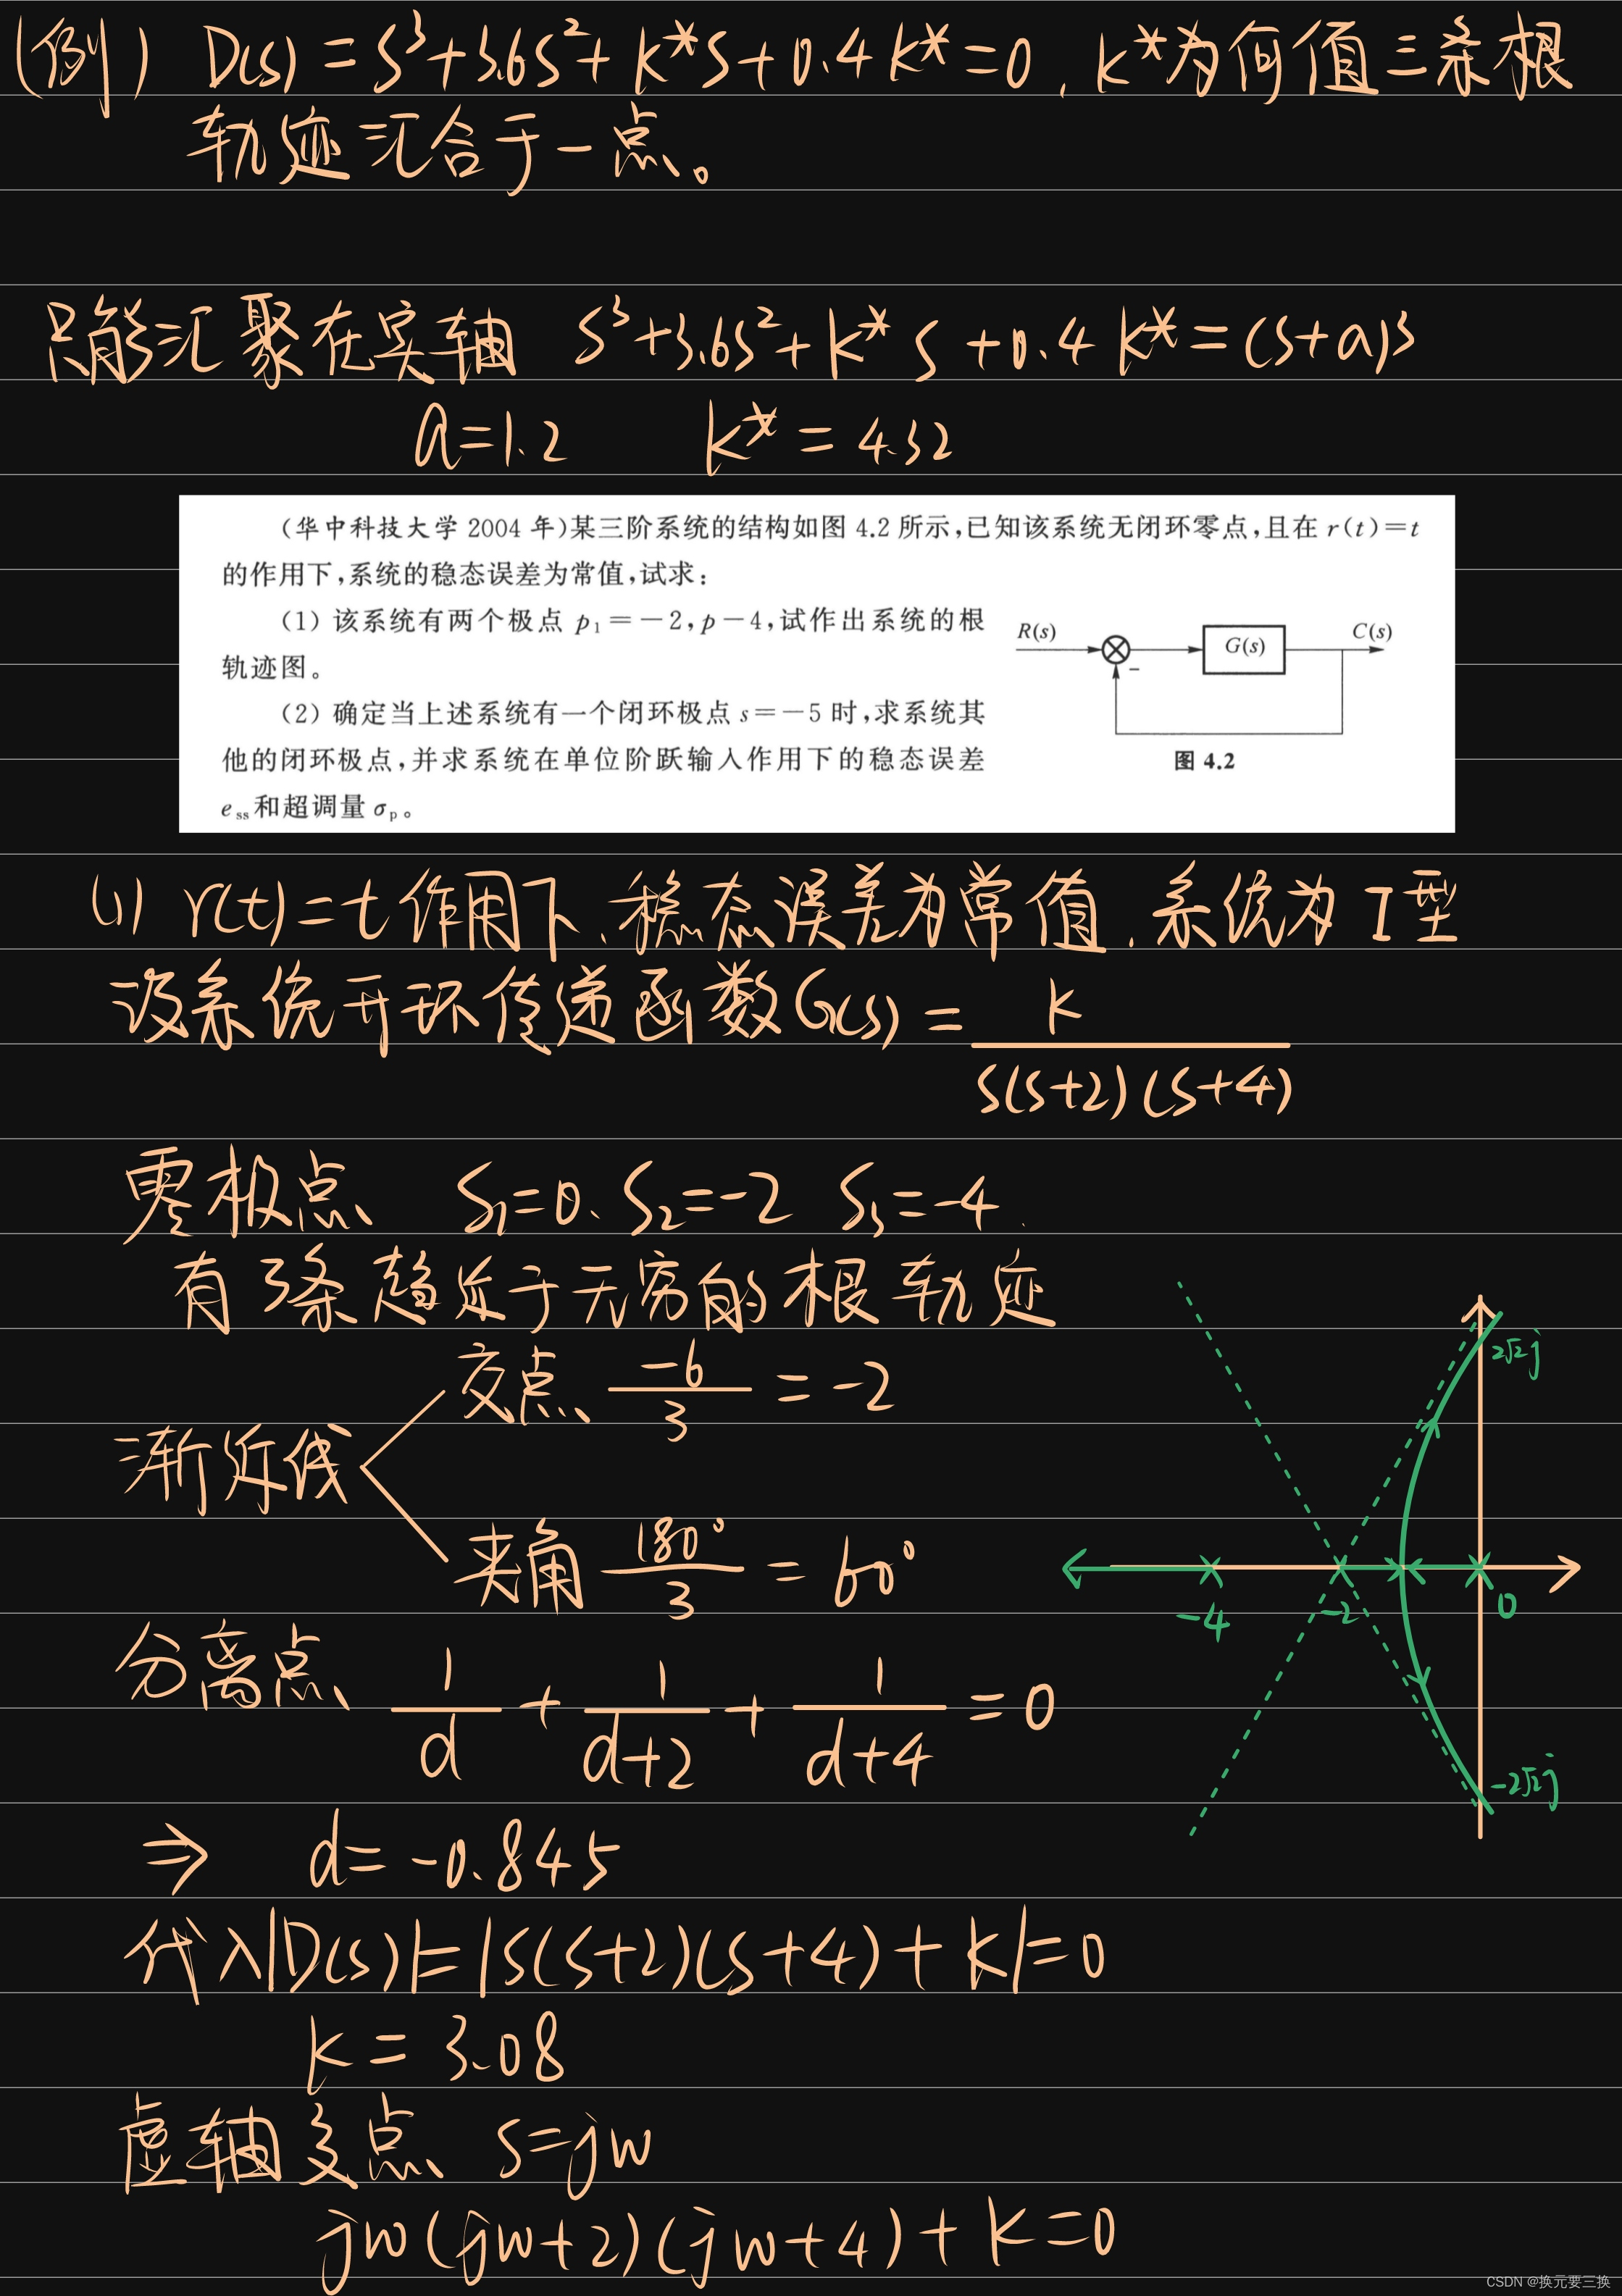 (例) D(s)=s³+3.6s²+k*s+0.4k*=0,k*为何值三条根
轨迹汇合于一点。
只能汇聚在实轴 s³+3.6s²+k*s+0.4k*=(s+a)³
a=1.2 k*=4.32
(华中科技大学 2004 年)某三阶系统的结构如图 4.2 所示,已知该系统无闭环零点,且在 r(t)=t
的作用下,系统的稳态误差为常值,试求:
(1) 该系统有两个极点 p₁=-2,p-4,试作出系统的根
轨迹图。
(2) 确定当上述系统有一个闭环极点 s=-5 时,求系统其
他的闭环极点,并求系统在单位阶跃输入作用下的稳态误差
e_ss和超调量 σ_p。
R(s) G(s) C(s)
-
图 4.2
(1) r(t)=t作用下、稳态误差为常值.系统为I型
设系统开环传递函数G(s)=k/(s(s+2)(s+4))
零极点 S₁=0、S₂=-2 S₃=-4
有3条趋近于无穷的根轨迹
渐近线
交点 -6/3=-2
夹角 180°/3=60°
2√2j
-4 -2 0
-2√2j
分离点 1/d+1/(d+2)+1/(d+4)=0
⇒ d=-0.845
代入|D(s)|=|s(s+2)(s+4)+k|=0
k=3.08
虚轴交点 s=jw
jw(jw+2)(jw+4)+k=0
CSDN @换元要三换